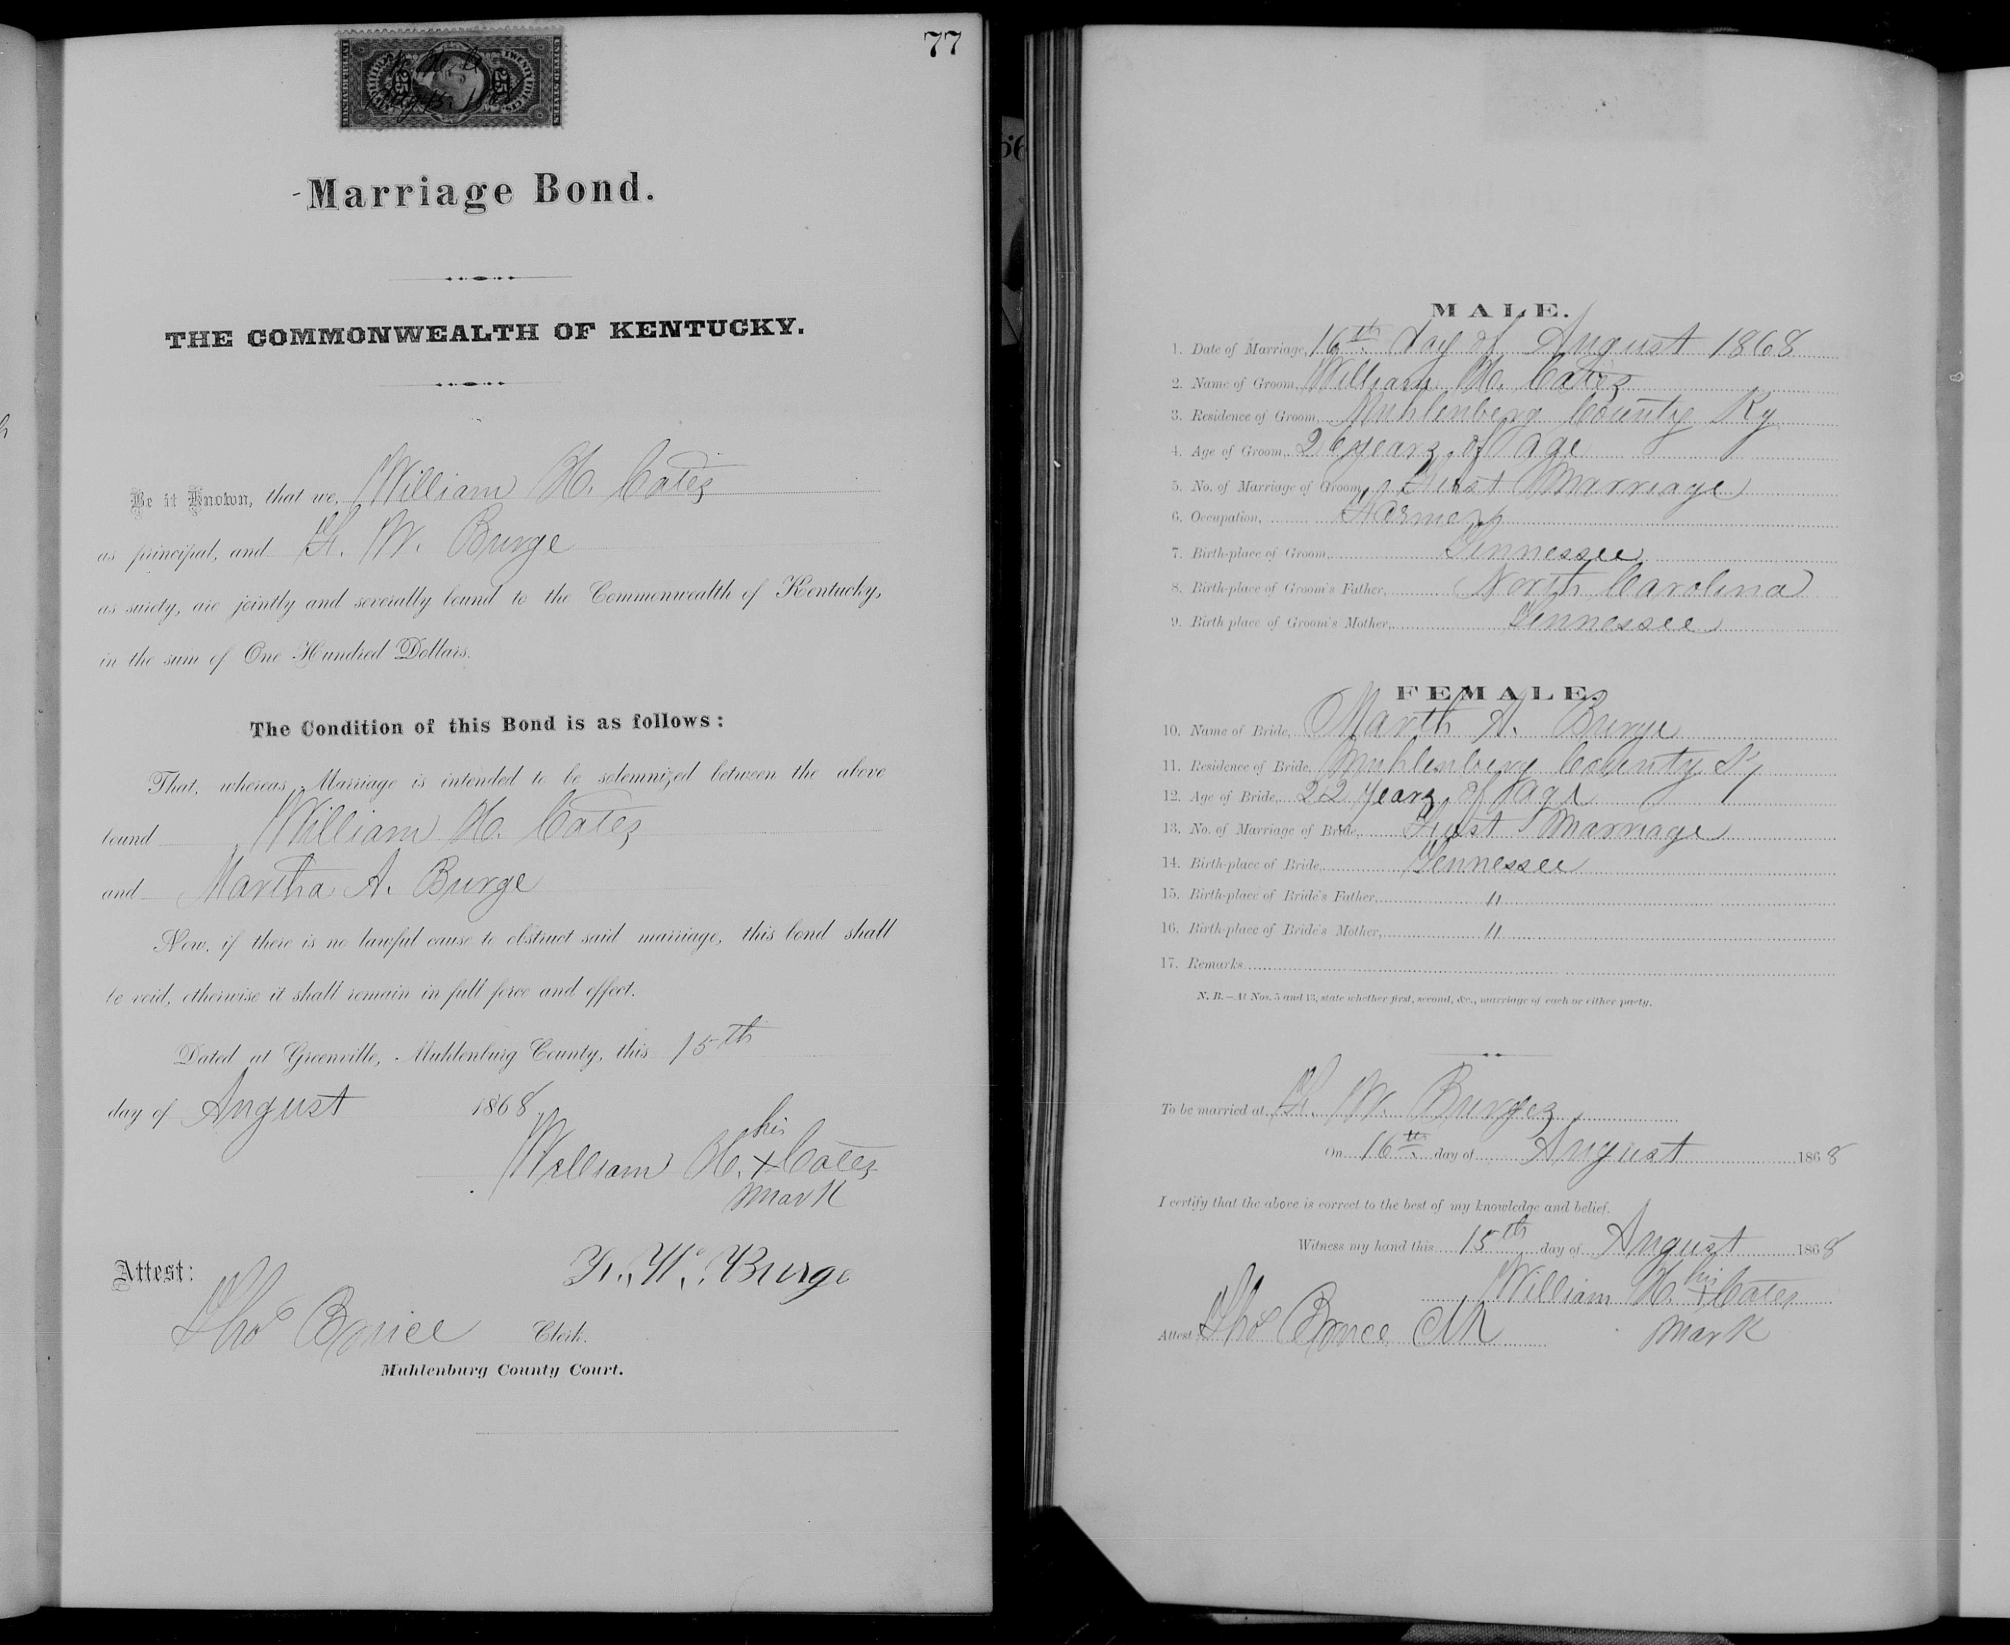 77
Marriage Bond.
THE COMMONWEALTH OF KENTUCKY.
Be it Known, that we, William H. Cates
as principal, and F. W. Burge
as surety, are jointly and severally bound to the Commonwealth of Kentucky,
in the sum of One Hundred Dollars.
The Condition of this Bond is as follows:
That, whereas, Marriage is intended to be solemnized between the above
bound William H. Cates
and Martha A. Burge
Now, if there is no lawful cause to obstruct said marriage, this bond shall
be void, otherwise it shall remain in full force and effect.
Dated at Greenville, Muhlenburg County, this 15th
day of August 1868.
his
William H. x Cates
mark
Attest: F. W. Burge
Thos Bruce Clerk.
Muhlenburg County Court.
MALE.
1. Date of Marriage, 16th day of August 1868
2. Name of Groom, William H. Cates
3. Residence of Groom, Muhlenberg County Ky
4. Age of Groom, 26 years of age
5. No. of Marriage of Groom, First Marriage
6. Occupation, Farmer
7. Birth-place of Groom, Tennessee
8. Birth-place of Groom's Father, North Carolina
9. Birth place of Groom's Mother, Tennessee
FEMALE.
10. Name of Bride, Marth A. Burge
11. Residence of Bride, Muhlenberg County Ky
12. Age of Bride, 22 years of age
13. No. of Marriage of Bride, First Marriage
14. Birth-place of Bride, Tennessee
15. Birth-place of Bride's Father, "
16. Birth-place of Bride's Mother, "
17. Remarks
N. B.—At Nos. 5 and 13, state whether first, second, &c., marriage of each or either party.
To be married at F. W. Burges
On 16th day of August 1868
I certify that the above is correct to the best of my knowledge and belief.
Witness my hand this 15th day of August 1868
his
William H. x Cates
Attest Thos Bruce Clk mark